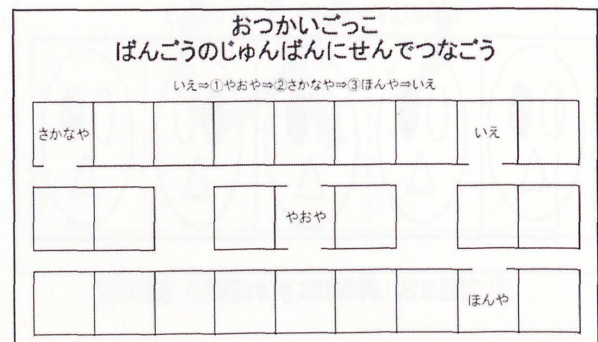 おつかいごっこ
ばんごうのじゅんばんにせんでつなごう
いえ⇒①やおや⇒②さかなや⇒③ほんや⇒いえ
さかなや いえ
やおや
ほんや